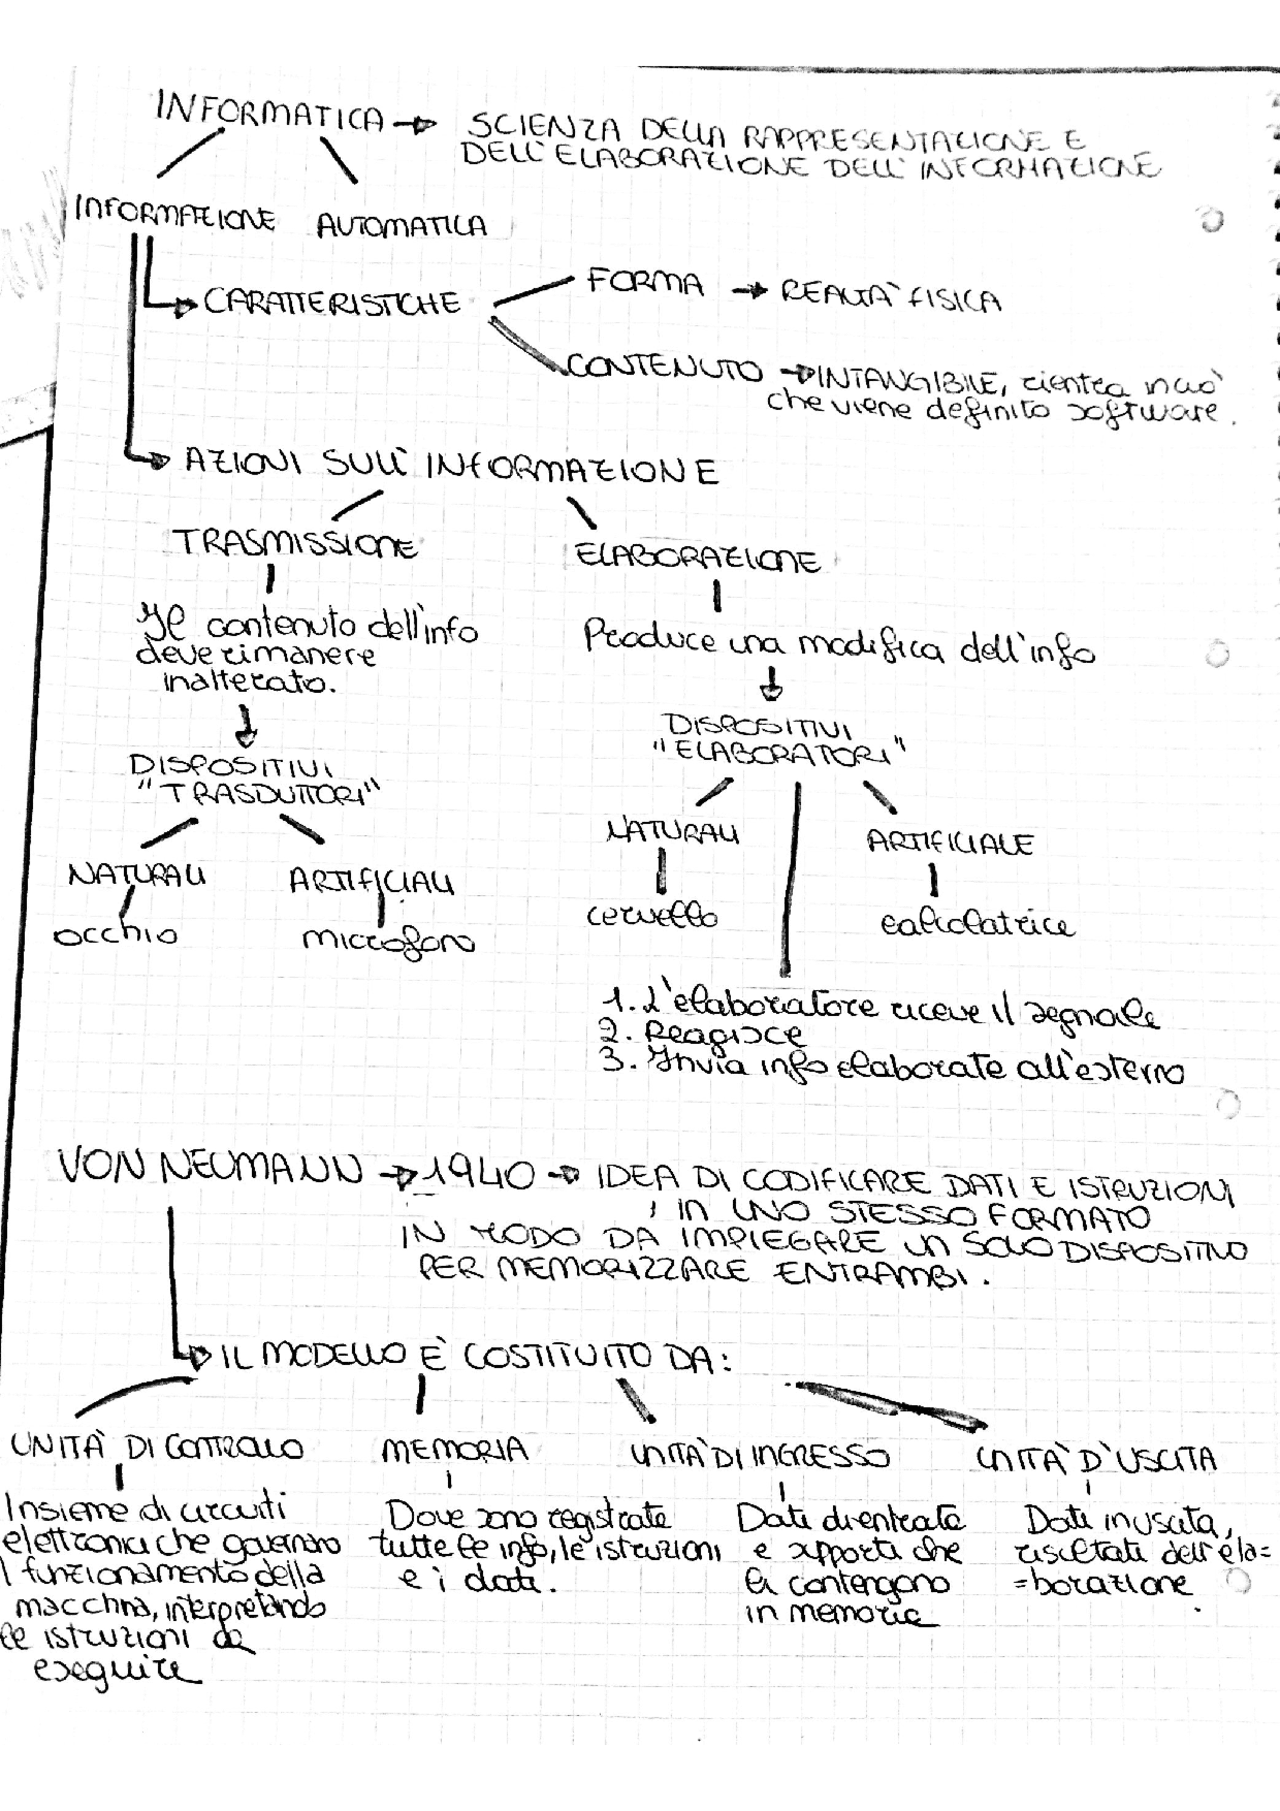 INFORMATICA → SCIENZA DELLA RAPPRESENTAZIONE E
DELL'ELABORAZIONE DELL'INFORMAZIONE
INFORMAZIONE AUTOMATICA
CARATTERISTICHE
FORMA → REALTÀ FISICA
CONTENUTO → INTANGIBILE, rientra in ciò
che viene definito software.
AZIONI SULL'INFORMAZIONE
TRASMISSIONE
Il contenuto dell'info
deve rimanere
inalterato.
DISPOSITIVI
"TRASDUTTORI"
NATURALI ARTIFICIALI
occhio microfono
ELABORAZIONE
Produce una modifica dell'info
DISPOSITIVI
"ELABORATORI"
NATURALI ARTIFICIALE
cervello calcolatrice
1. L'elaboratore riceve il segnale
2. Reagisce
3. Invia info elaborate all'esterno
VON NEUMANN → 1940 → IDEA DI CODIFICARE DATI E ISTRUZIONI
IN UNO STESSO FORMATO
IN MODO DA IMPIEGARE UN SOLO DISPOSITIVO
PER MEMORIZZARE ENTRAMBI.
IL MODELLO È COSTITUITO DA:
UNITÀ DI CONTROLLO
Insieme di circuiti
elettronici che governano
l funzionamento della
macchina, interpretando
le istruzioni da
eseguire
MEMORIA
Dove sono registrate
tutte le info, le istruzioni
e i dati.
UNITÀ DI INGRESSO
Dati di entrata
e supporti che
li contengono
in memoria
UNITÀ D'USCITA
Dati in uscita,
risultati dell'ela=
=borazione